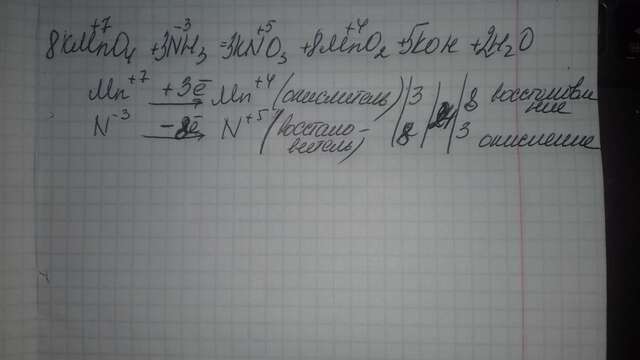 +7 -3 +5 +4
8KMnO4 + 3NH3 = 3KNO3 + 8MnO2 + 5KOH + 2H2O
Mn+7 +3ē → Mn+4 (окислитель) | 3 | 24 | 8 восстановление
N-3 -8ē → N+5 (восстановитель) | 8 | 3 окисление